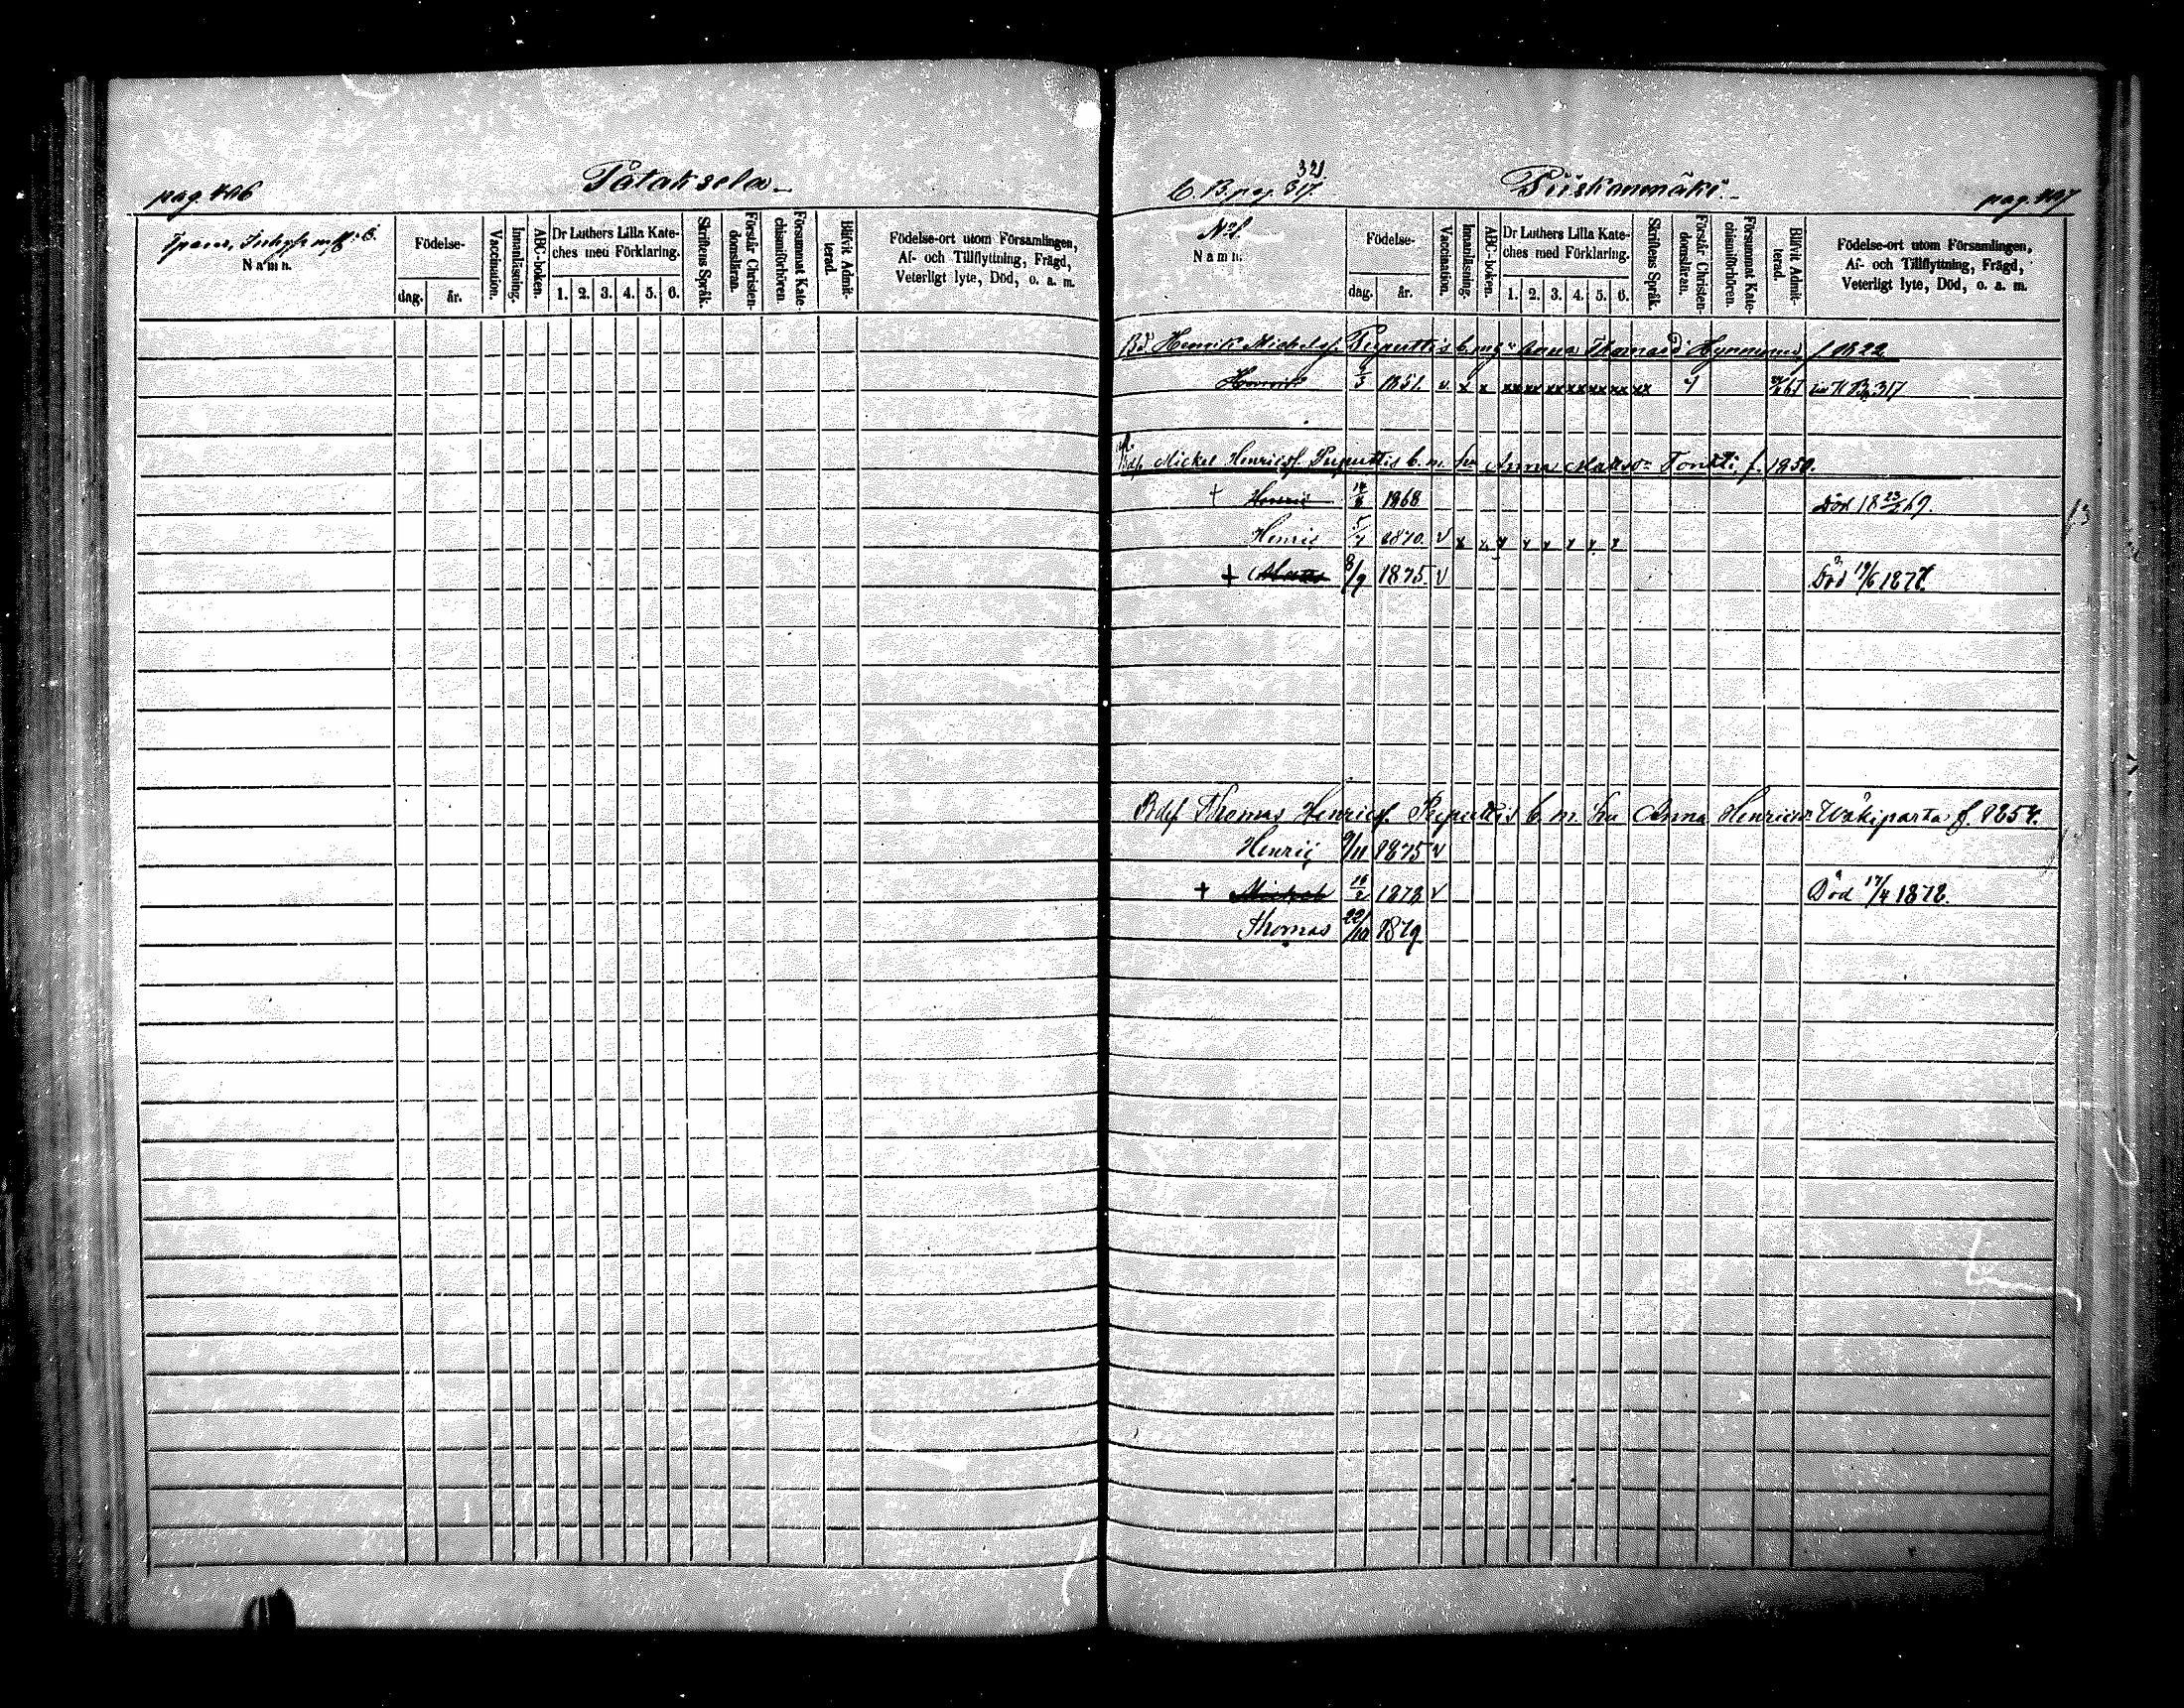 pag. 406
Patakselä
Namn.
Födelse-
dag.
år.
Vaccination.
Innanläsning.
ABC-boken.
Dr Luthers Lilla Kate-
ches med Förklaring.
1. 2. 3. 4. 5. 6.
Skriftens Språk.
Förstår Christen-
domsläran.
Försummat Kate-
chismiförhören.
Blifvit Admit-
terad.
Födelse-ort utom Församlingen,
Af- och Tillflyttning, Frägd,
Veterligt lyte, Död, o. a. m.
321.
C. B. pag. 317.
Piiskanmäki.
pag. 407
No 1.
Namn.
Födelse-
dag.
år.
Vaccination.
Innanläsning.
ABC-boken.
Dr Luthers Lilla Kate-
ches med Förklaring.
1. 2. 3. 4. 5. 6.
Skriftens Språk.
Förstår Christen-
domsläran.
Försummat Kate-
chismiförhören.
Blifvit Admit-
terad.
Födelse-ort utom Församlingen,
Af- och Tillflyttning, Frägd,
Veterligt lyte, Död, o. a. m.
Bd. Henrik Michelsf. Peputtis Anna Thomasd. Hynninen f. 1822
Henrik 1851. v x x xx xx xx xx xx xx xx 317
Mickel Henricsf. Peputtis b. m. Anna Tontti, f. 1850.
+ Henric 1868 Död 18 23/2 69.
Henric 5/7 1870. v x x x x x x x x
+ Matts 8/9 1875 v Död 19/6 1877.
Bdsf Thomas Henricsf. Peputtis b. m. hu Anna Henricsdr Wäkiparta f. 1854.
Henric 9/11 1875 v
+ Michel 1878 v Död 17/4 1878.
Thomas 22/10 1879